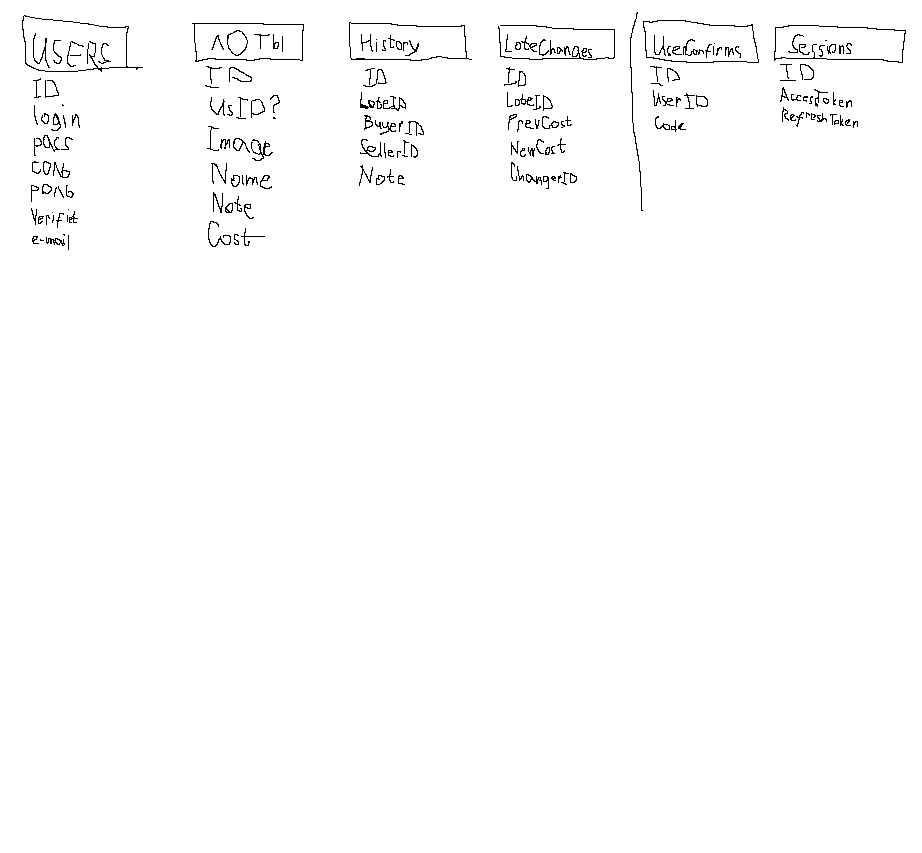 USERS
ID
login
pacs
соль
роль
Verifiet
e-mail
ЛОТЫ
ID
UsID?
Image
Name
Note
Cost
History
ID
LoteID
BuyerID
SellerID
Note
LoteChanges
ID
LoteID
PrevCost
NewCost
ChangerID
UserConfirms
ID
UserID
Code
Sessions
ID
AccesToken
RefreshToken